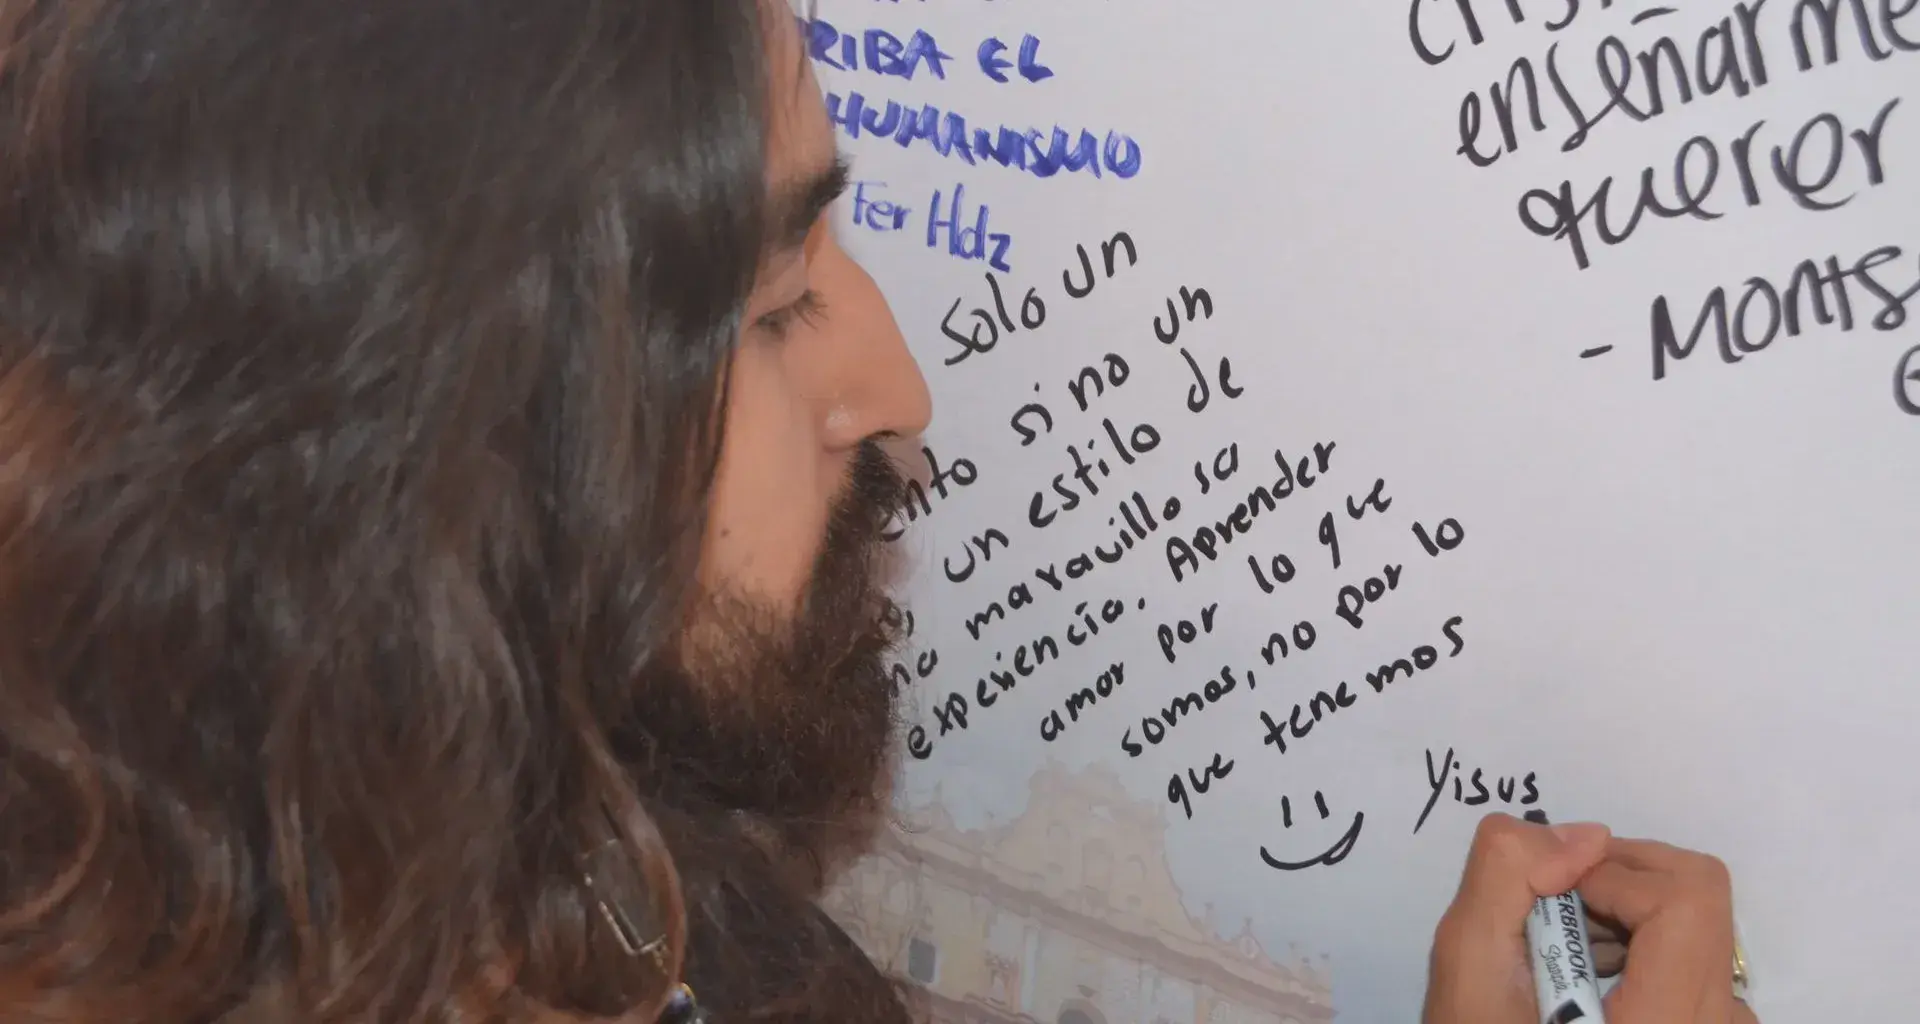 RIBA EL
HUMANISMO
Fer Hdz
Solo un
nto sino un
un estilo de
maravillosa
experiencia. Aprender
amor por lo que
somos, no por lo
que tenemos
Yisus
enseñarme
querer
- Monts
ERBROOK
Sharpie